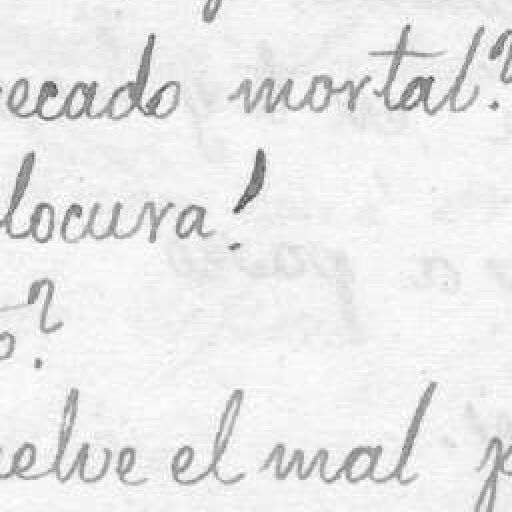 ecado mortal?
locura!
o?
elve el mal p